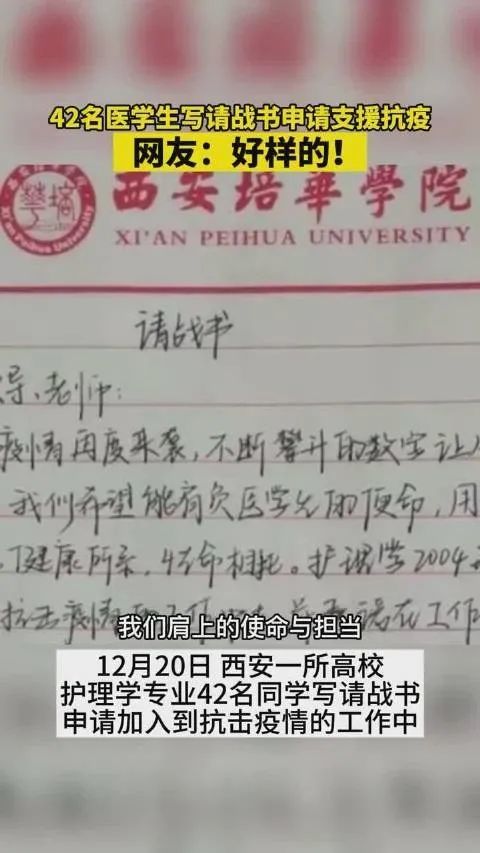 42名医学生写请战书申请支援抗疫
网友：好样的！
西安培華學院
XI'AN PEIHUA UNIVERSITY
Xi'an Peihua University
请战书
导、老师：
疫情再度来袭，不断攀升的数字让
我们希望能肩负医学生的使命，用
健康所系，性命相托。护理学2004
抗击疫情的工作
在工作
我们肩上的使命与担当
12月20日 西安一所高校
护理学专业42名同学写请战书
申请加入到抗击疫情的工作中